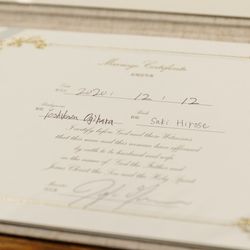 Marriage Certificate
Date 2020 . 12 . 12
Bridegroom Bride
Ogihara Suki Hirose
I certify before God and these Witnesses
that this man and this woman have affirmed
by oath to be husband and wife
in the name of God the Father and
Jesus Christ the Son and the Holy Spirit
Minister